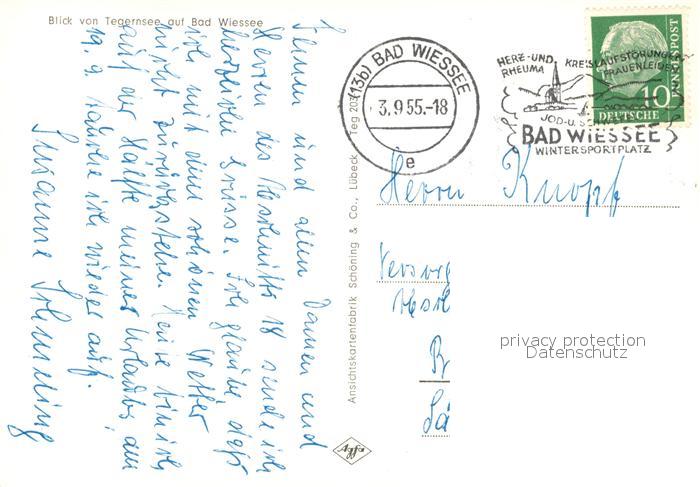 Blick von Tegernsee auf Bad Wiessee
Ihnen und allen Damen und
Herren des Abschnitts 18 sende ich
herzliche Grüsse. Ich glaube, dass
ich mit dem schönen Wetter
nicht zurückstehe. Heute bin ich
auf der Hälfte meines Urlaubs, am
19. 9. ich wieder auf.
Susanne
Ansichtskartenfabrik Schöning & Co., Lübeck
Teg 203
Agfa
(13b) BAD WIESSEE
3.9.55.-18
e
HERZ- UND KREISLAUFSTÖRUNGEN
RHEUMA FRAUENLEIDEN
JOD- U. SCHWEFEL
BAD WIESSEE
WINTERSPORTPLATZ
DEUTSCHE BUNDESPOST
10
Herrn Knopf
Versorg
Absch
R
Lä
privacy protection
Datenschutz